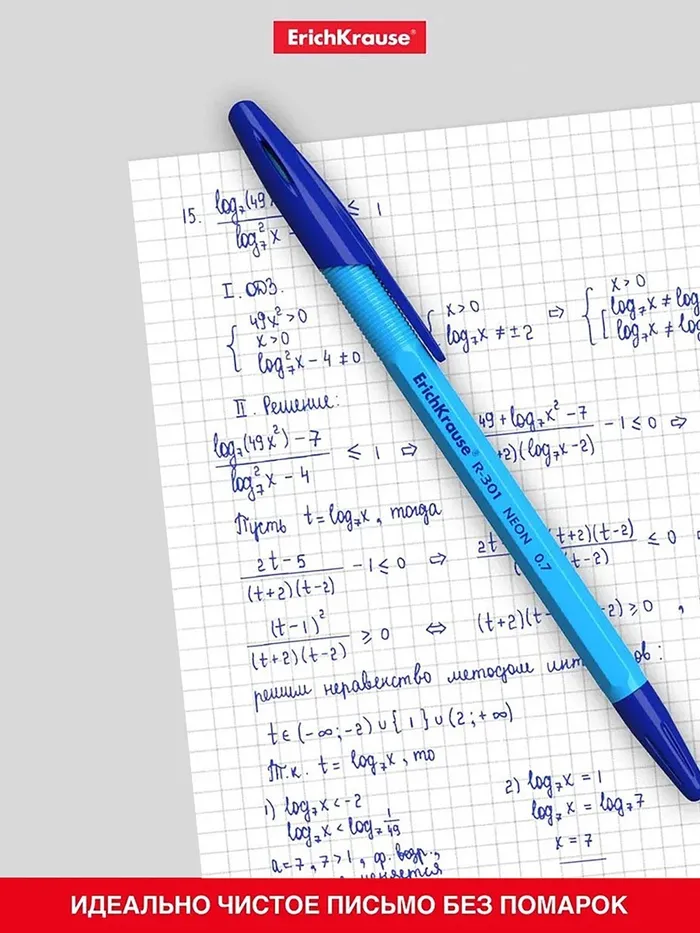 ErichKrause®
15. log₇(49x ≤ 1
log₇²x -
I. ОДЗ.
{ 49x²>0
x>0
log₇²x - 4 ≠ 0
{ x>0
log₇x ≠ ±2
⇨ { x>0
[ log₇x ≠ log
log₇x ≠ log
II. Решение:
log₇(49x²) - 7 / log₇²x - 4 ≤ 1 ⇨ 49 + log₇x² - 7 / +2)(log₇x - 2) - 1 ≤ 0 ⇨
Пусть t = log₇x, тогда
2t - 5 / (t+2)(t-2) - 1 ≤ 0 ⇨ 2t (t+2)(t-2) / t-2) ≤ 0
(t-1)² / (t+2)(t-2) ≥ 0 ⇔ (t+2)(t -2) ≥ 0 ,
решим неравенство методом инт ов:
t ∈ (-∞; -2) ∪ { 1 } ∪ (2; +∞)
Т.к. t = log₇x, то
1) log₇x < -2
log₇x < log₇ 1/49
a = 7, 7 > 1, ф. возр.,
няется
2) log₇x = 1
log₇x = log₇7
x = 7
ErichKrause® R-301 NEON 0.7
ИДЕАЛЬНО ЧИСТОЕ ПИСЬМО БЕЗ ПОМАРОК